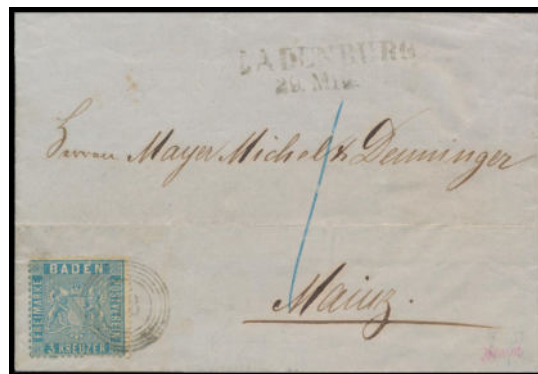 LADENBURG
29. Mrz.
Herren Mayer Michel & Denninger
Mainz.
BADEN
FREIMARKE
POSTVEREIN
3 KREUZER